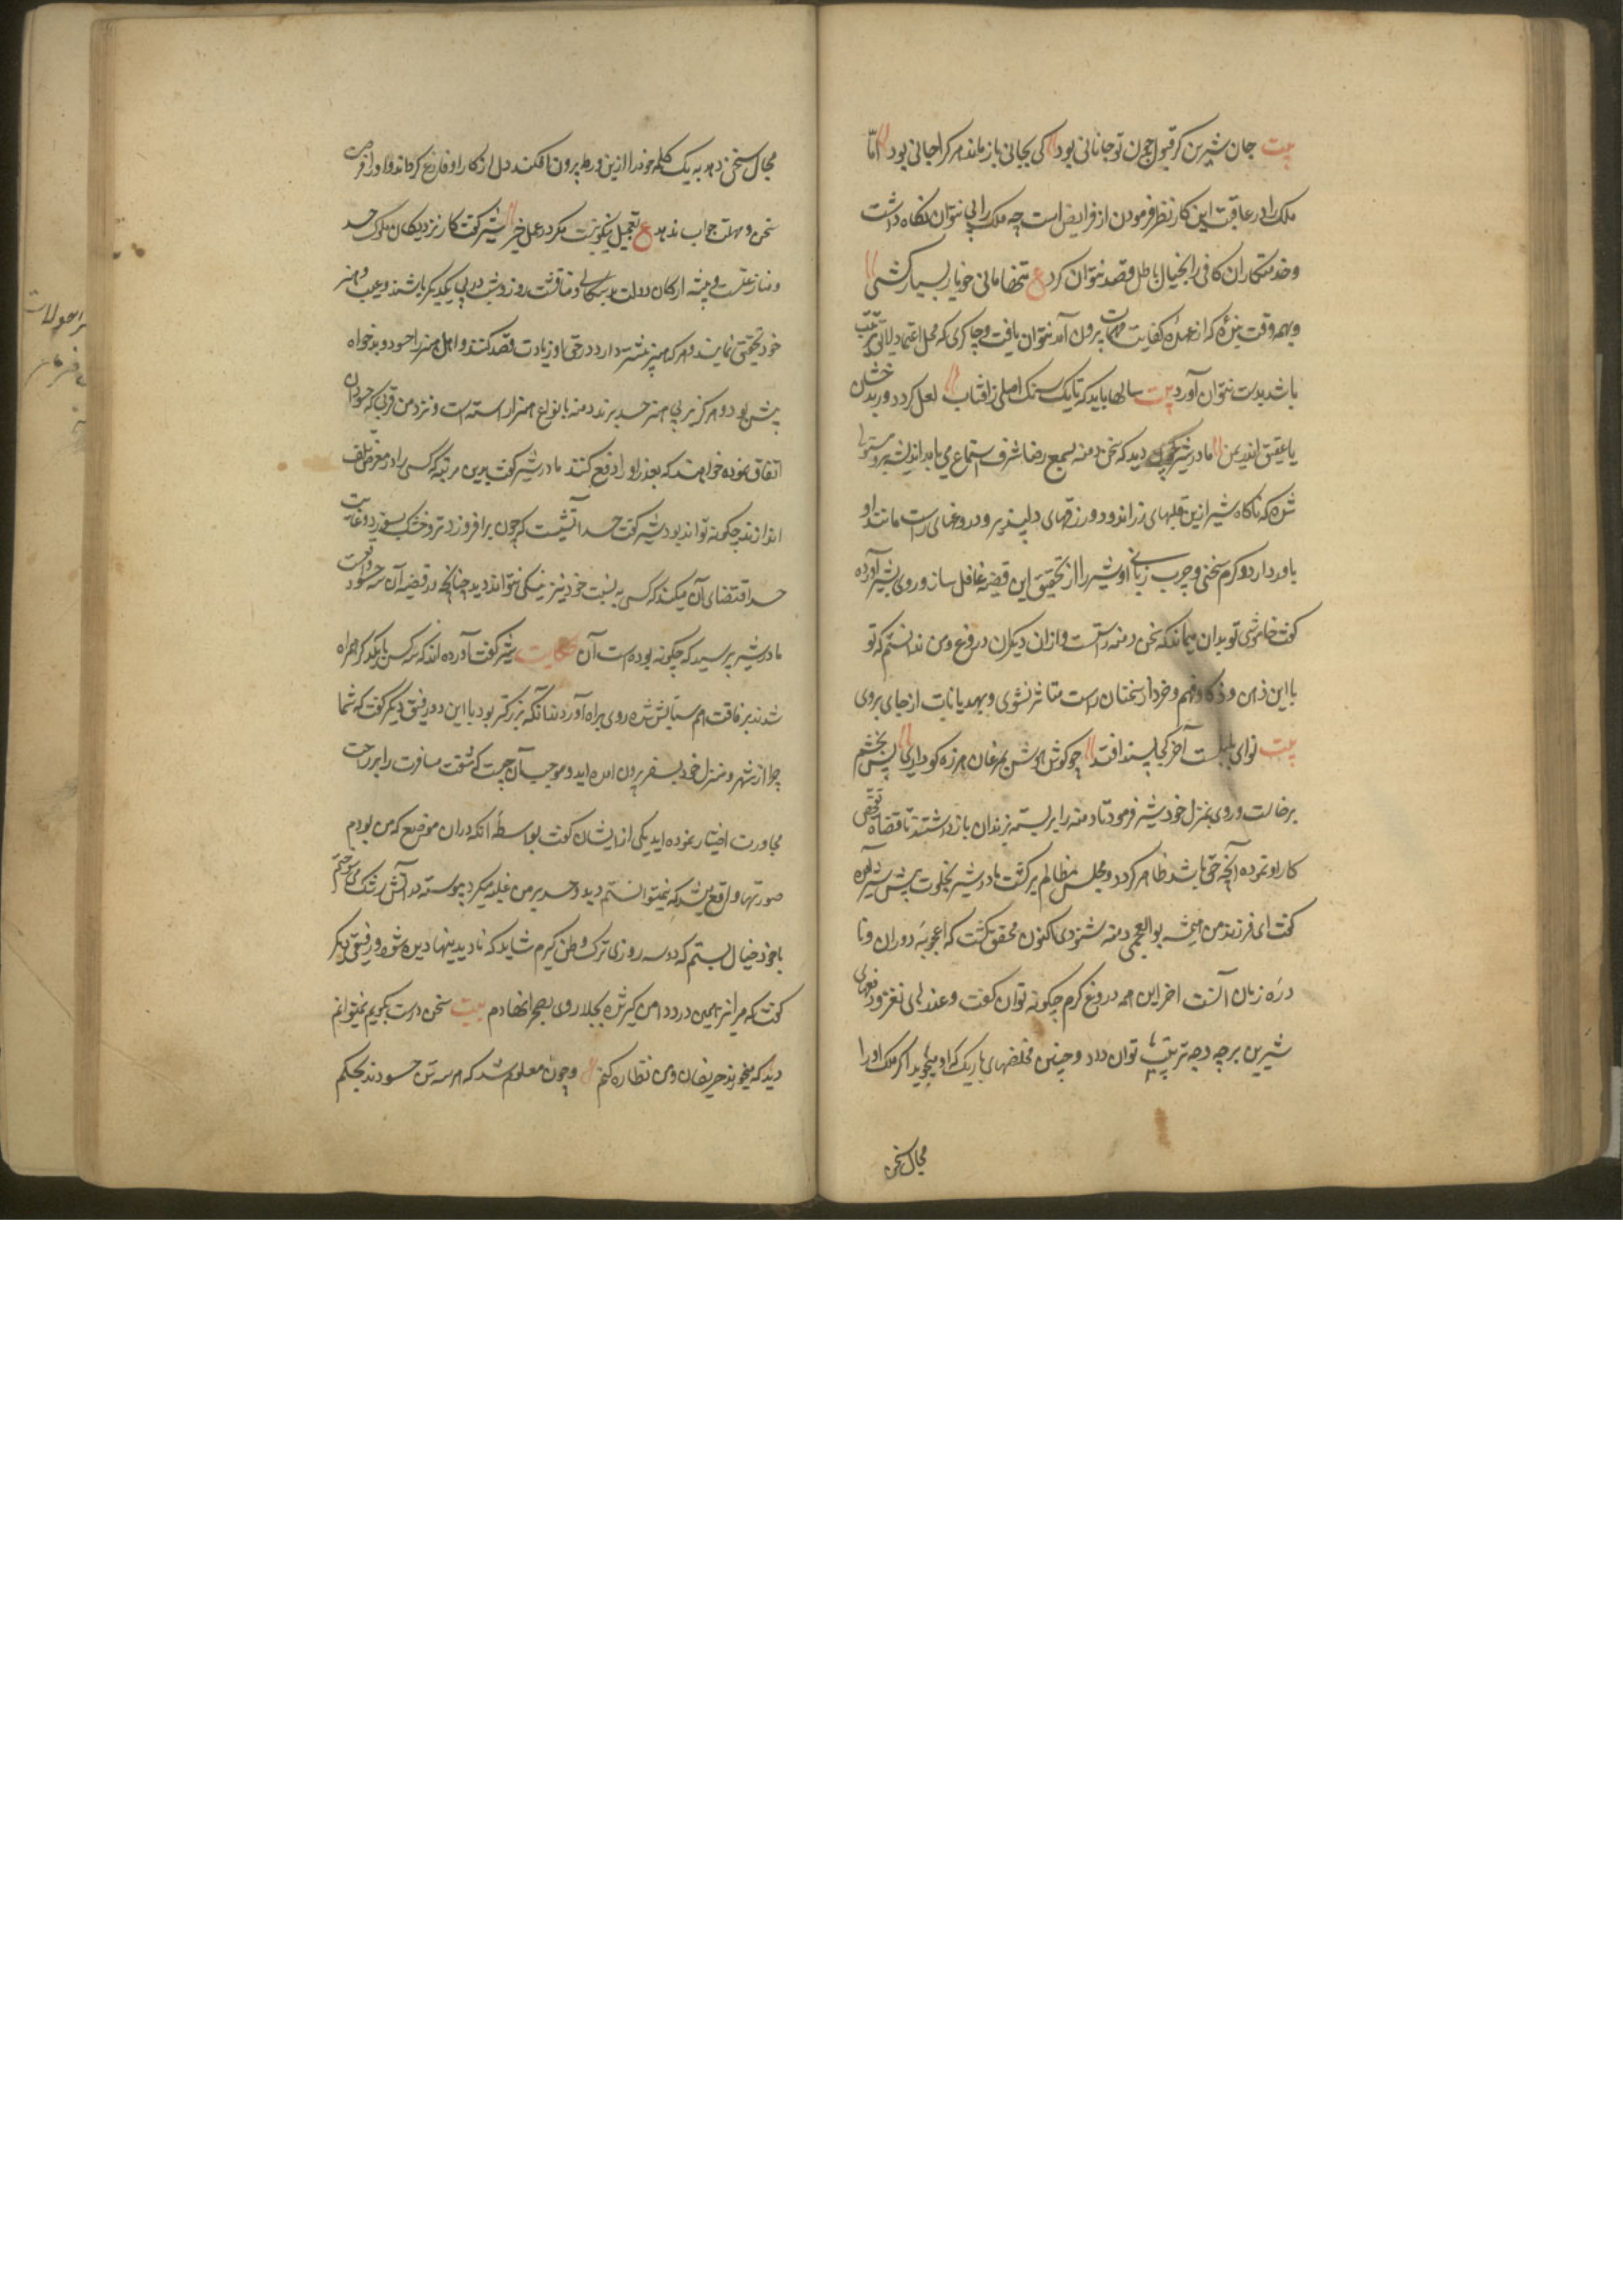 بیت جان شیرین کر قبول چون تو جانانی بود کی بجانی باز ماند هر کرا جانی بود اما
ملک را در عاقبت این کار نظر فرمودن از فرایض است چه ملک را بی نتوان نکاه داشت
و خدمتکاران کافی را بخیال باطل قصد نتوان کرد ع تنها مانی چو یار بسیار کشی
و بهمه وقت بندۀ که از عهدۀ کفایت مهمات بیرون آید نتوان یافت و چاکری که محل اعتماد و لایق تربیت
باشد بدست نتوان آورد بیت سالها باید که تا یک سنک اصلی ز افتاب لعل کردد در بدخشان
یا عقیق اندر یمن مادر شیر چون دید که سخن دمنه بسمع رضا شرف استماع می یابد اندیشه برو مستولی
شده که ناکاه شیر ازین قلبهای زر اندود و زرقهای دلپذیر و دروغهای راست مانند او
باور دارد و کرم سخنی و چرب زبانی او شیر را از تحقیق این قضیه غافل سازد روی بشیر آورده
کفت خاموشی تو بدان میماند که سخن دمنه راستست و ازان دیکران دروغ و من ندانستم که تو
با این ذهن و ذکا و فهم و خرد از سخنان راست متاثر نشوی و بهذیانات از جای بروی
بیت نوای بلبلت آخر کجا پسند افتد چو کوش هوش بمرغان هرزه کو داری پس بخشم
برخاست و روی بمنزل خود شیر فرمود تا دمنه را بر بسته بزندان باز داشتند تا قضاة تفحص
کار او نموده آنچه حق باشد ظاهر کردد و مجلس مظالم بر کشت مادر شیر بخلوت پیش شیر آمده
کفت ای فرزند من همیشه بوالعجبی دمنه شنودی اکنون محقق کشت که اعجوبۀ دوران و نا
درۀ زمان آنست اخر این همه دروغ کرم چکونه توان کفت و عذرهای نغز و دفعهای
شیرین بر چه وجه ترتیب توان داد و چنین مخلصهای باریک که او میجوید اکر ملک او را
مجال سخن
مجال سخن دهد به یک کلمه خود را ازین ورطه بیرون افکند دل از کار او فارغ کرداند و او را فرصت
سخن و مهلت جواب ندهد ع تعجیل نیکو نیست مکر در عمل خیر شیر کفت کار نزدیکان ملوک حسد
و منازعتست و پیشه ارکان دولت بدسکالی و مناقشت روز و شب در پی یکدیکر باشند و عیب و هنر
خود تحقیق نمایند و هر که هنر بیشتر دارد در حق او زیادت قصد کنند و اهل هنر را حسود و بدخواه
بیش بود و هرکز بر بی هنر حسد نبرند دمنه بانواع هنر اراسته است و نزد من قربی که حسودان
اتفاق نموده خواهند که بعذر او را دفع کنند مادر شیر کفت بدین مرتبه که کسی را در معرض تلف
اندازند چکونه تواند بود شیر کفت حسد آتشیست که چون برافروزد تر و خشک بسوزد و غایت
حسد اقتضای آن میکند که کسی به نسبت خود نیز نیکی نتواند دید چنانچه در قضیه آن سه حسود واقعست
مادر شیر پرسید که چکونه بوده است آن حکایت شیر کفت آورده اند که سه کس با یکدیکر همراه
شدند برفاقت هم ستایش شده روی براه آوردند آنکه بزرکتر بود با این دو رفیق دیکر کفت که شما
چرا از شهر و منزل خود بسفر بیرون آمده اید و موجب آن چیست که مشقت مسافرت را بر راحت
مجاورت اختیار نموده اید یکی از ایشان کفت بواسطۀ انکه دران موضع که من بودم
صورتها واقع میشد که نمیتوانستم دید و حسد بر من غلبه میکرد پیوسته در آتش رشک می سوختم
با خود خیال بستم که دو سه روزی ترک وطن کیرم شاید که نادیدنیها دیده نشود رفیق دیکر
کفت که مرا نیز همین درد دامن کیر شده بجلا روی بصحرا نهادم بیت سخن درست بکویم نمیتوانم
دید که میخورند حریفان و من نظاره کنم و چون معلوم شد که هر سه تن حسودند بحکم